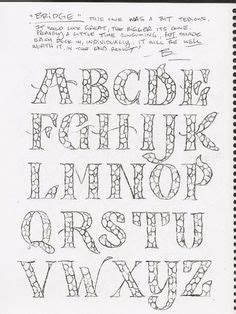 "BRIDGE" - THIS ONE WAS A BIT TEDIOUS.
IT WILL LOOK GREAT, THE BIGGER ITS DONE.
PROBABLY A LITTLE TIME CONSUMING, BUT SHADE
EACH BRICK IN, INDIVIDUALLY. IT WILL BE WELL
WORTH IT, IN THE END RESULT!
ABCDE
FGHIJK
LMNOP
QRSTU
VWXYZ